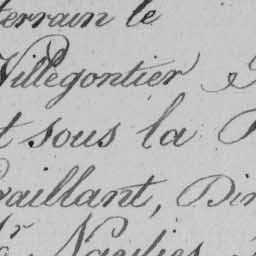 terrain le
Villegontier
t sous la
vaillant, Dir